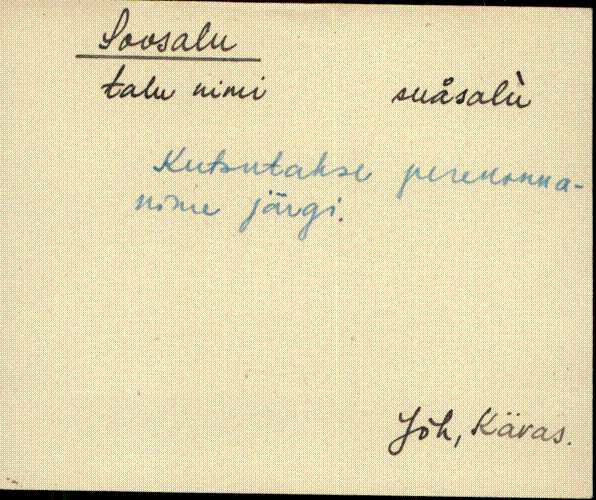 Soosalu
talu nimi suåsalù
Kutsutakse perekonna-
nime järgi.
Jõh, Käras.